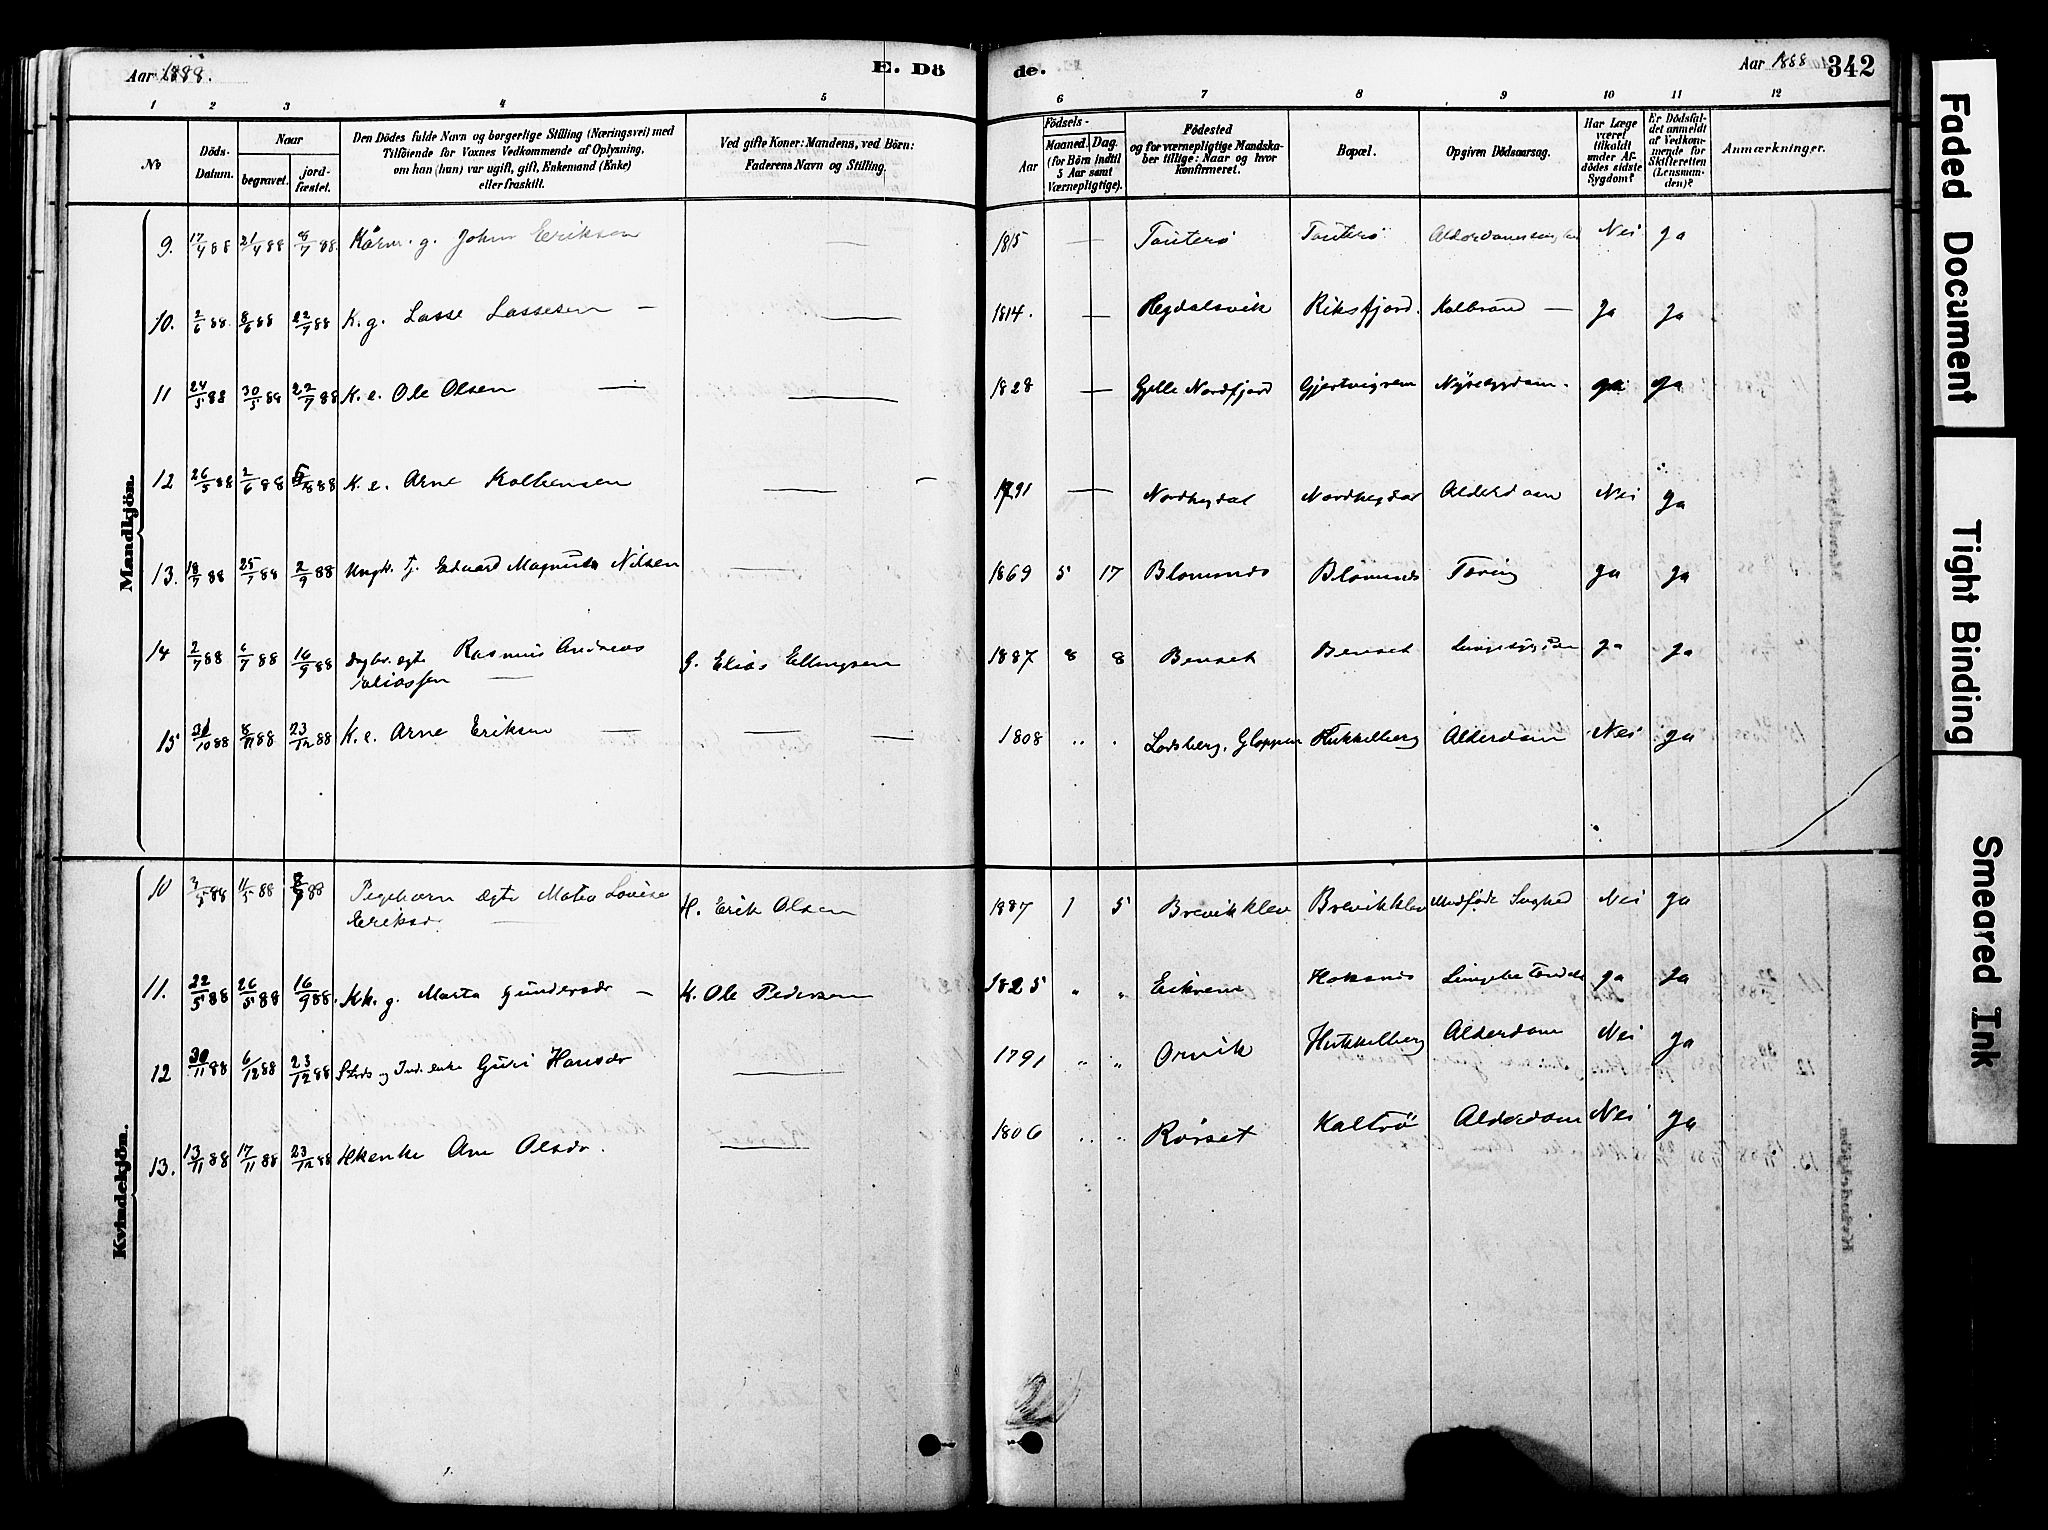 Aar 1888.
E. Dö
de.
Aar 1888
342
1 2 3 4 5 6 7 8 9 10 11 12
No
Döds-Datum.
Naar
begravet.
jord-fæstet.
Den Dödes fulde Navn og borgerlige Stilling (Næringsvei) med
Tilföiende for Voxnes Vedkommende af Oplysning,
om han (hun) var ugift, gift, Enkemand (Enke)
eller fraskilt.
Ved gifte Koner: Mandens, ved Börn:
Faderens Navn og Stilling.
Födsels-
Aar
Maaned.
Dag.
(for Börn indtil
5 Aar samt
Værnepligtige).
Födested
og for værnepligtige Mandska-
ber tillige: Naar og hvor
konfirmeret.
Bopæl.
Opgiven Dödsaarsag.
Har Læge
været
tilkaldt
under Af-
dödes sidste
Sygdom?
Er Dödsfal-
det anmeldt
af Vedkom-
mende for
Skifteretten
(Lensman-
den)?
Anmærkninger.
Mandkjön.
9. 17/4 88 21/4 88 8/7 88. Kårm. g. John Eriksen — 1815 — Tauterö Tauterö Nei Ja
10. 2/6 88. 8/6 88 22/7 88 K. g. Lasse Lassesen — — 1814. — Hegdalsvik Riksfjord. Kolbrand — Ja Ja
11 24/5 88 30/5 88 22/7 88 K. e. Ole Olsen — — 1828 — Gjelle Nordfjord Ja Ja
12 26/5 88 2/6 88 88 K. e. Arne — — 1791 — Nordhegdal Nordhegdal Alderdom Nei Ja
13. 18/7 88 25/7 88 2/9 88 Ungk. Tj. Edvard Magnus Nilsen — 1869 5 17 Blomsnes Blomsnes Tæring Ja Ja
14 2/7 88 6/7 88 16/9 88 Dagbr. ægte Rasmus Andreas
Eliassen — G. Elias Ellingsen 1887 8 8 Benset Benset Ja Ja
15 31/10 88 8/11 88 23/12 88 K. e. Arne Eriksen — — — 1808 " . Gloppen Hukkelberg Alderdom Nei Ja
Kvindekjön.
10 3/5 88 11/5 88 8/7 88 Pigebarn ægte Matea Lovise
Eriksd. — H. Erik Olsen 1887 1 5 Brevikklev Brevikklev Medfödt Svaghed Nei Ja
11. 22/5 88 26/5 88 16/9 88. Kk. g. Marta Gundersdr — K. Ole Pedersen 1825 " " Eikrem Hoksnes Ja Ja
12 30/11 88 6/12 88 23/12 88 enke Guri Hansdr — 1791 " " Orvik Hukkelberg Alderdom Nei Ja
13. 13/11 88 17/11 88 23/12 88 Hkenke Ane Olsdr. — 1806 " " Rörset Kaltrö Alderdom Nei Ja
Faded Document
Tight Binding
Smeared Ink